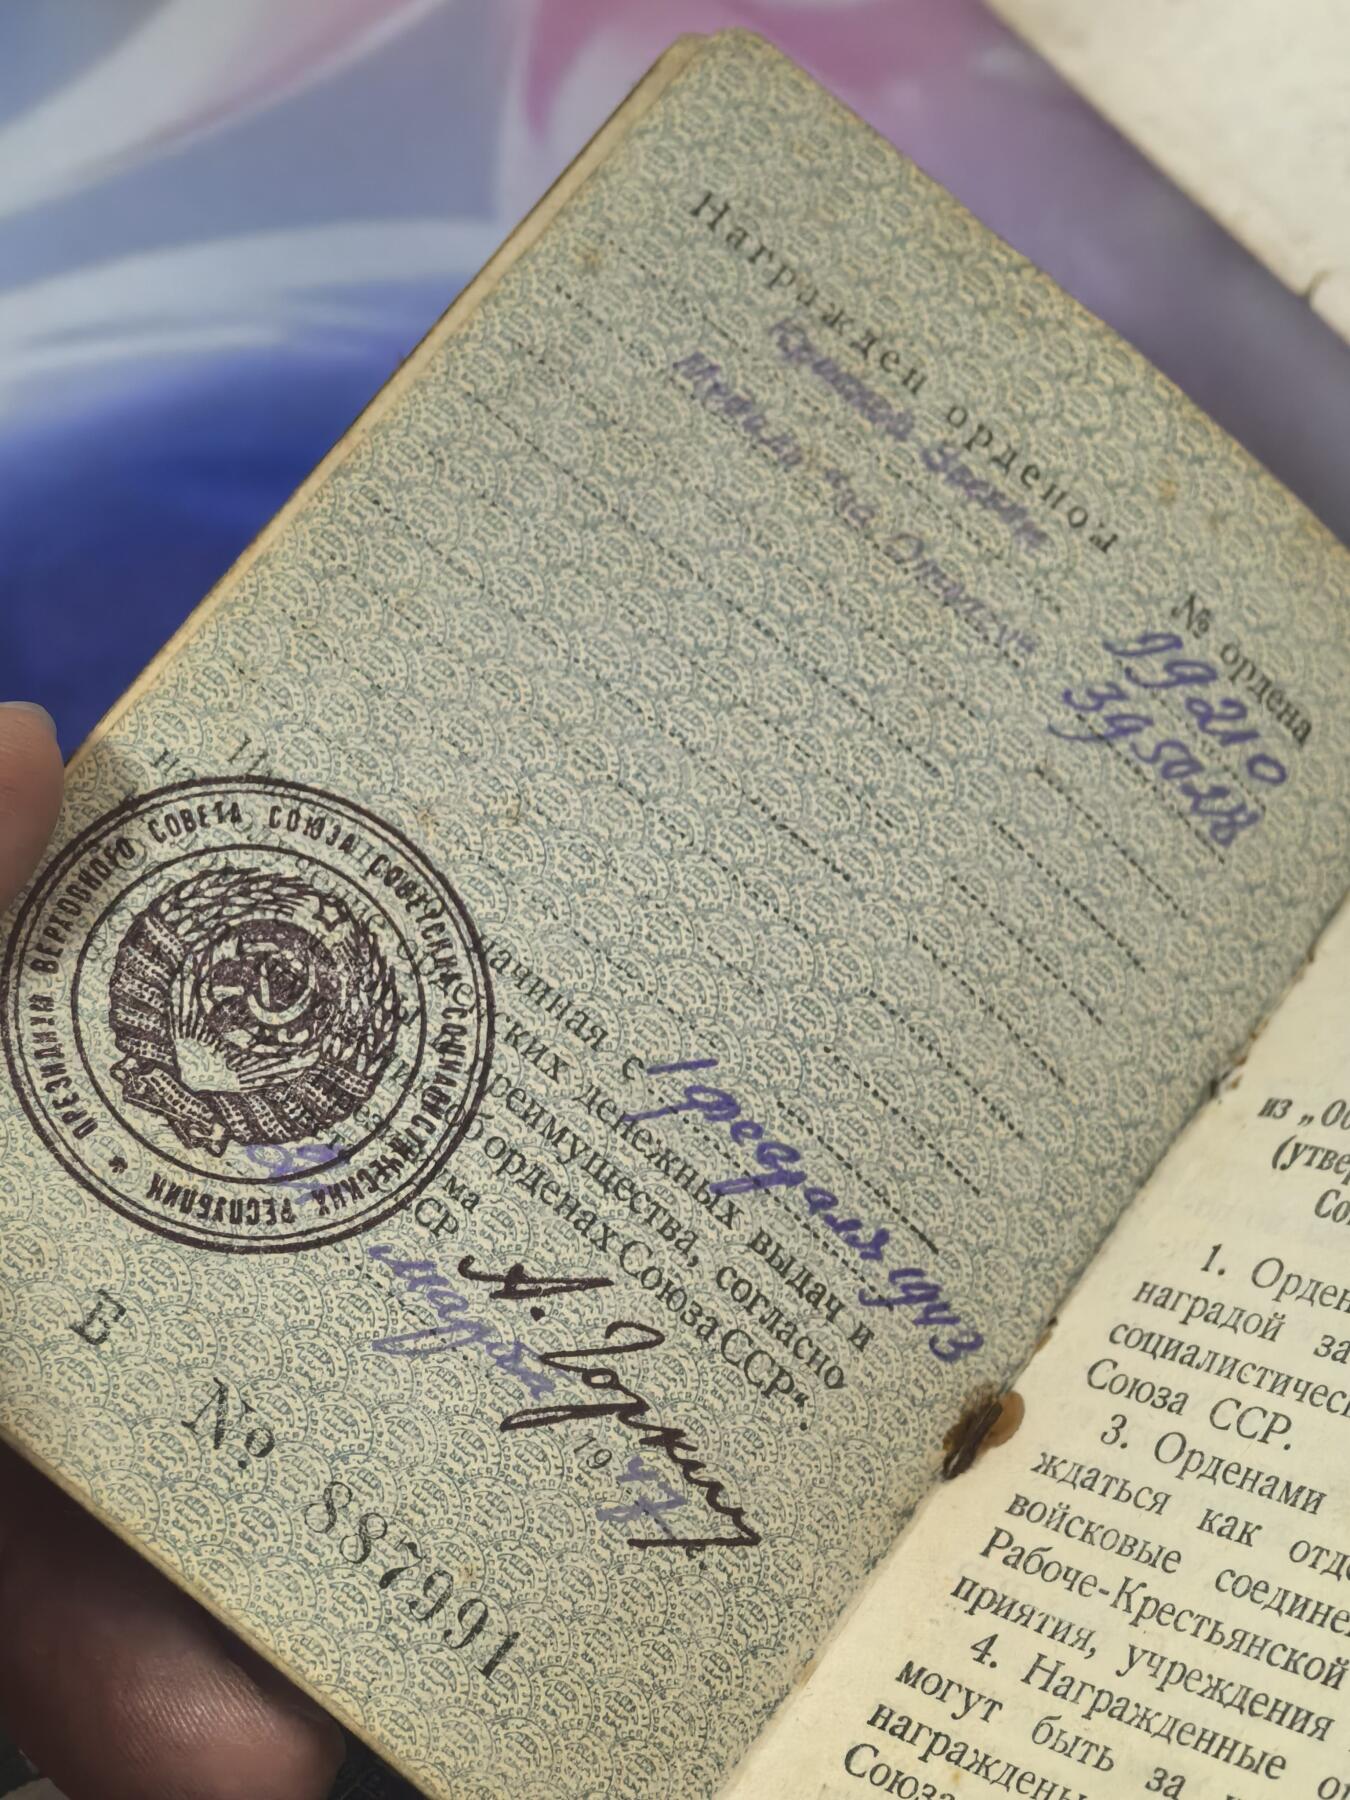 Награжден орденом
№ ордена
Красной Звезды
19210
Медаль "За Отвагу"
395028
начиная с 1 февраля 1943
ских денежных выдач и
преимущества, согласно
орденах Союза ССР“.
ССР А. Горкин
марта 1947 г.
Е № 887991
ПРЕЗИДИУМ ВЕРХОВНОГО СОВЕТА СОЮЗА СОВЕТСКИХ СОЦИАЛИСТИЧЕСКИХ РЕСПУБЛИК
из „Об
(утвер
Со
1. Орден
наградой за
социалистичес
Союза ССР.
3. Орденами
ждаться как отде
войсковые соедине
Рабоче-Крестьянской
приятия, учреждения
4. Награжденные о
могут быть за
награждены
Союза